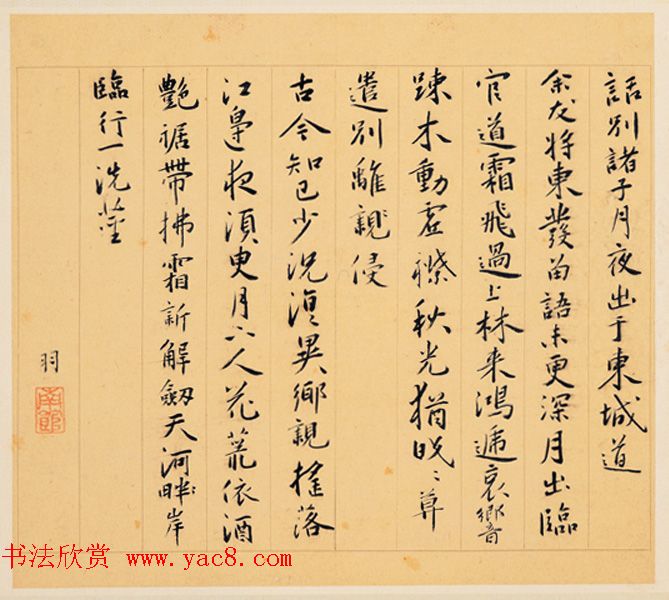 話別諸子月夜出于東城道
余友將東發留語未更深月出臨
官道霜飛過上林來鴻遞哀響
踈木動虛襟秋光猶晚〻算
遣別離親侵
古今知己少況復異鄉親搖落
江皋夜須臾月下人花蘿依酒
艷裾帶拂霜新解劒天河畔岸
臨行一洗塵
羽
南館
书法欣赏 www.yac8.com